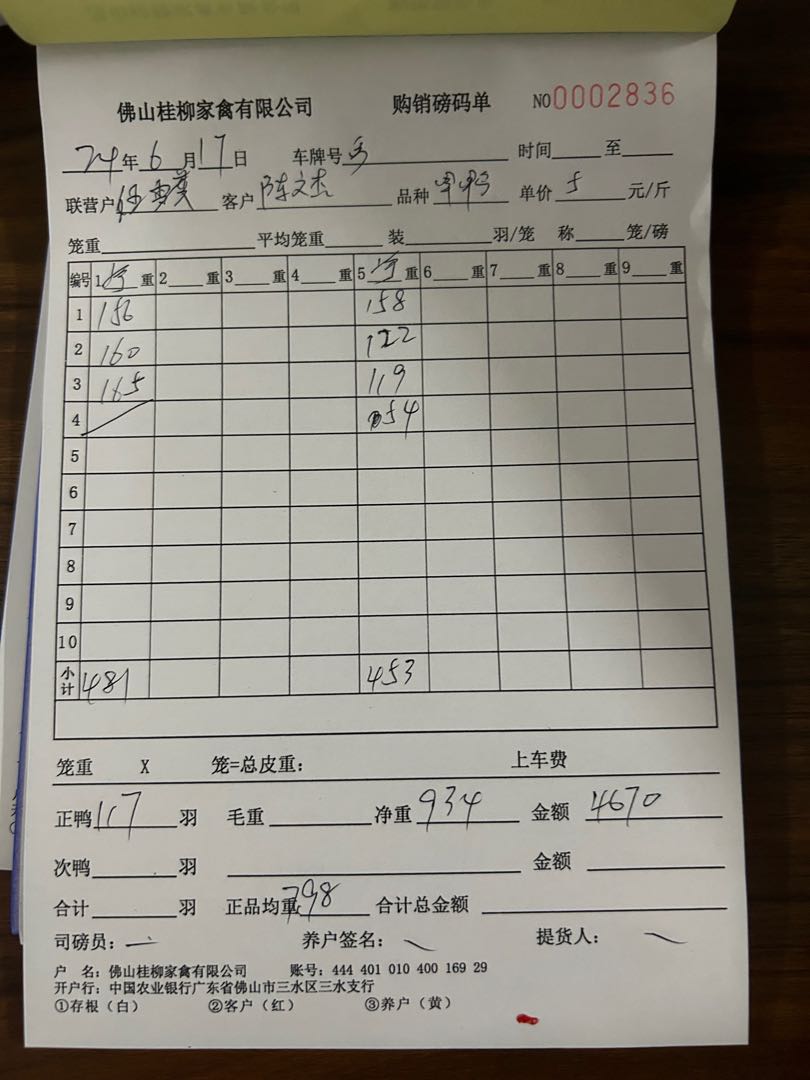 佛山桂柳家禽有限公司 购销磅码单 NO0002836
24年6月17日 车牌号 时间 至
联营户 客户 陈文杰 品种 单价 5 元/斤
笼重 平均笼重 装 羽/笼 称 笼/磅
编号 1 重 2 重 3 重 4 重 5 重 6 重 7 重 8 重 9 重
1 156 158
2 160 122
3 165 119
4 54
5
6
7
8
9
10
小计 481 453
笼重 X 笼=总皮重： 上车费
正鸭 117 羽 毛重 净重 934 金额 4670
次鸭 羽 金额
合计 羽 正品均重 798 合计总金额
司磅员： 养户签名： 提货人：
户 名：佛山桂柳家禽有限公司 账号：444 401 010 400 169 29
开户行：中国农业银行广东省佛山市三水区三水支行
①存根（白） ②客户（红） ③养户（黄）